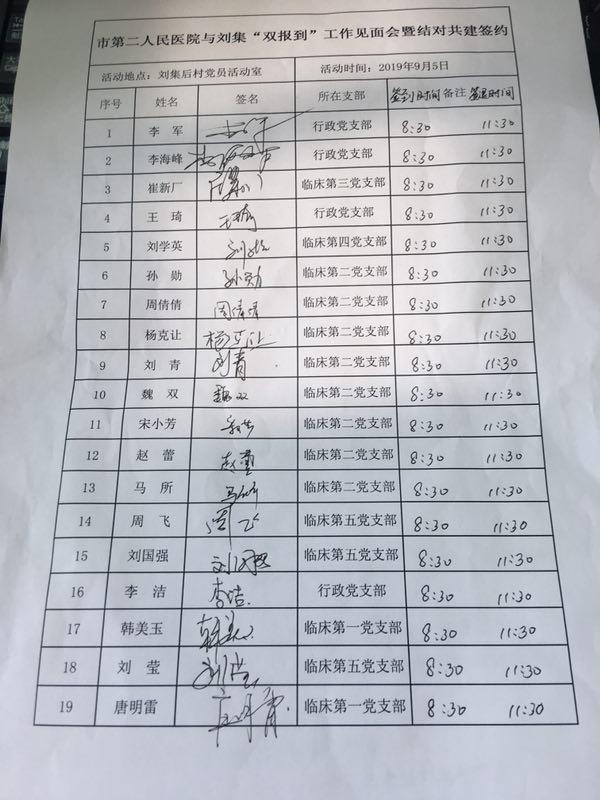 市第二人民医院与刘集“双报到”工作见面会暨结对共建签约
活动地点：刘集后村党员活动室 活动时间：2019年9月5日
序号 姓名 签名 所在支部 签到时间 备注 签退时间
1 李军 行政党支部 8:30 11:30
2 李海峰 李海峰 行政党支部 8:30 11:30
3 崔新厂 临床第三党支部 8:30 11:30
4 王琦 王琦 行政党支部 8:30 11:30
5 刘学英 临床第四党支部 8:30 11:30
6 孙勋 孙勋 临床第二党支部 8:30 11:30
7 周倩倩 周倩倩 临床第二党支部 8:30 11:30
8 杨克让 杨克让 临床第二党支部 8:30 11:30
9 刘青 刘青 临床第二党支部 8:30 11:30
10 魏双 魏双 临床第二党支部 8:30 11:30
11 宋小芳 临床第二党支部 8:30 11:30
12 赵蕾 赵蕾 临床第二党支部 8:30 11:30
13 马所 马所 临床第二党支部 8:30 11:30
14 周飞 周飞 临床第五党支部 8:30 11:30
15 刘国强 刘国强 临床第五党支部 8:30 11:30
16 李洁 李洁 行政党支部 8:30 11:30
17 韩美玉 韩美玉 临床第一党支部 8:30 11:30
18 刘莹 刘莹 临床第五党支部 8:30 11:30
19 唐明雷 临床第一党支部 8:30 11:30